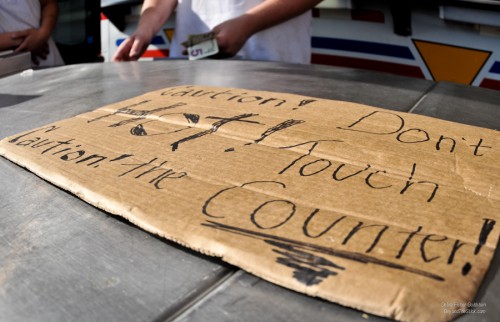 Caution! Don't
Hot! Touch
Caution! the
Counter!
5